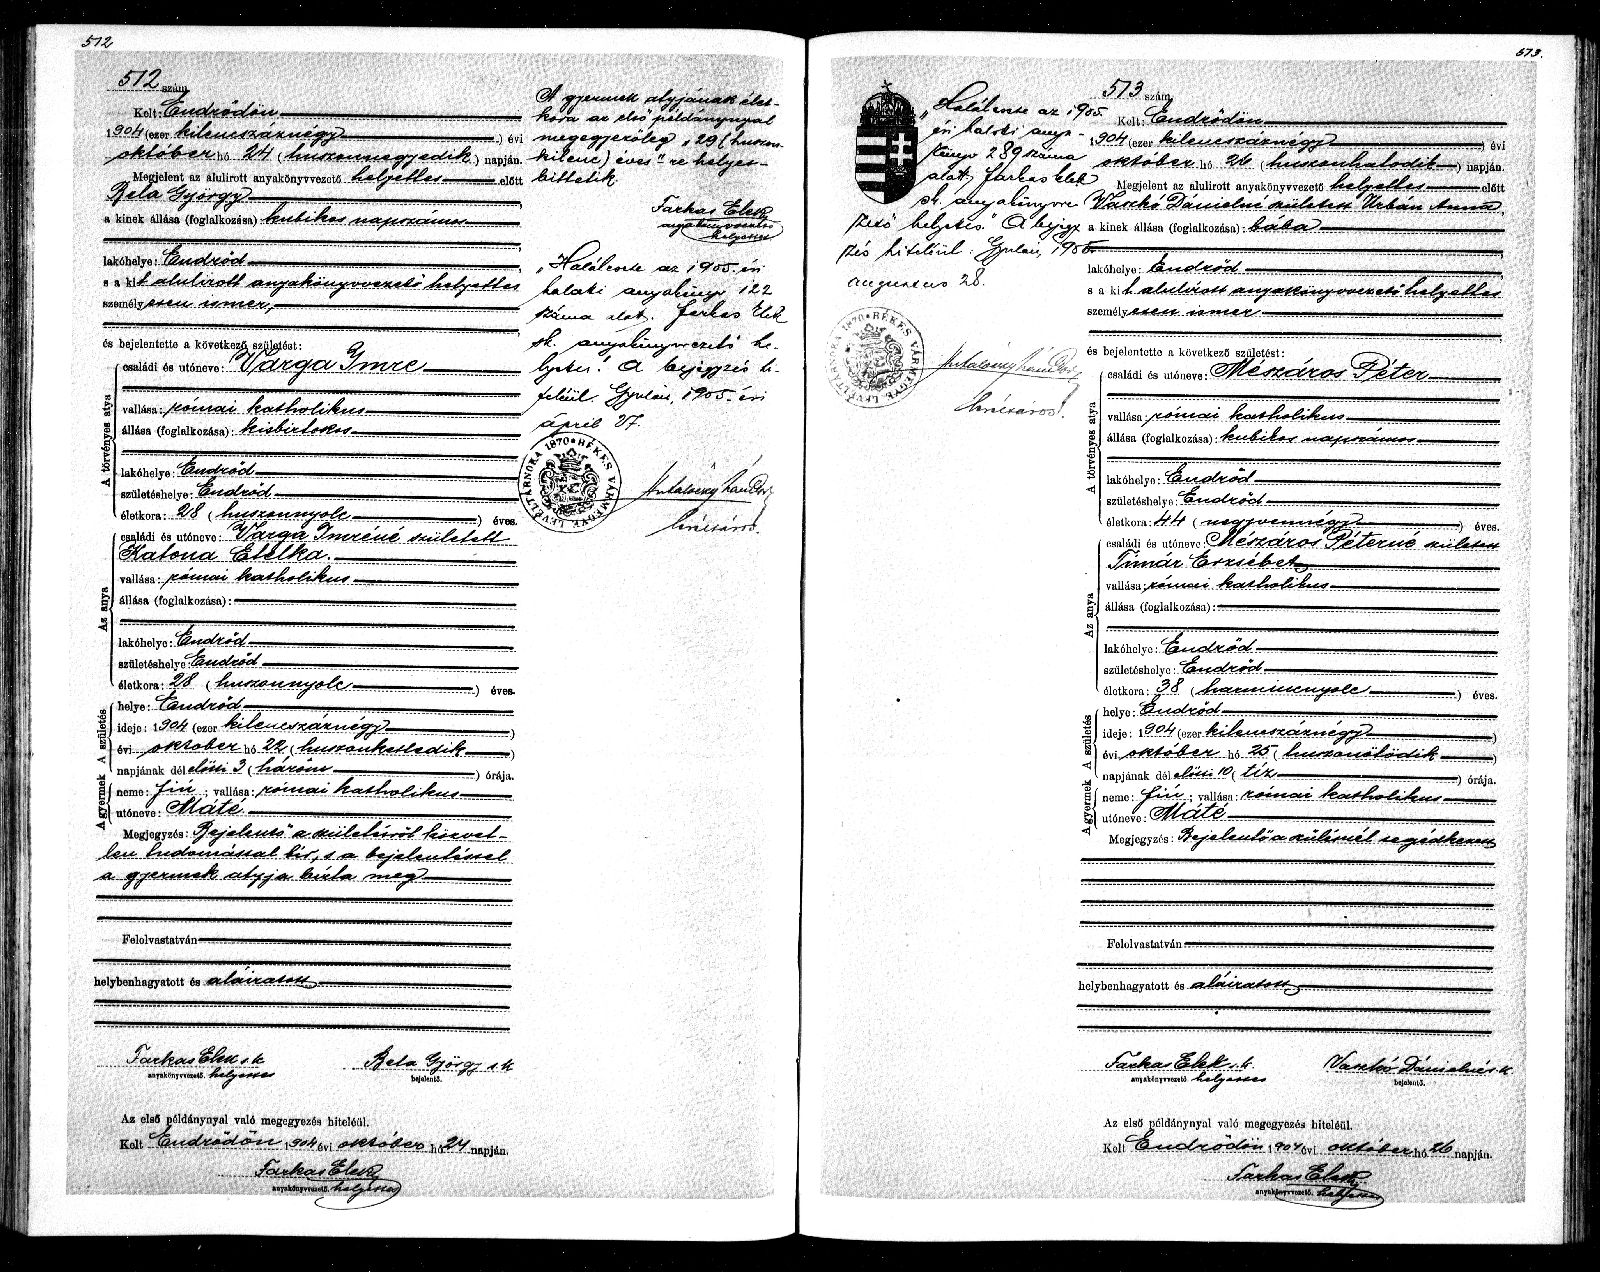 512
512 szám
Kelt: Endrődön
1904 (ezer kilencszáznégy) évi
október hó 24 (huszonnegyedik) napján.
Megjelent az alulirott anyakönyvvezető helyettes előtt
Bela György
a kinek állása (foglalkozása): kubikos napszámos
lakóhelye: Endrőd
s a kit alulirott anyakönyvvezető helyettes
személyesen ismer,
és bejelentette a következő születést:
A törvényes atya
családi és utóneve: Varga Imre
vallása: római katholikus
állása (foglalkozása): kisbirtokos
lakóhelye: Endrőd
születéshelye: Endrőd
életkora: 28 (huszonnyolc) éves.
Az anya
családi és utóneve: Varga Imréné született
Katona Etelka.
vallása: római katholikus
állása (foglalkozása):
lakóhelye: Endrőd
születéshelye: Endrőd
életkora: 28 (huszonnyolc) éves.
A születés
helye: Endrőd
ideje: 1904 (ezer kilencszáznégy)
évi október hó 22 (huszonkettedik)
napjának délelőtti 3 (három) órája.
A gyermek
neme: fiú; vallása: római katholikus
utóneve: Máté
Megjegyzés: Bejelentő a születésről közvet-
len tudomással bír, s a bejelentéssel
a gyermek atyja bízta meg
Felolvastatván
helybenhagyatott és aláiratott
Farkas Elek s.k. Bela György s.k.
anyakönyvvezető. helyettes bejelentő.
Az első példánynyal való megegyezés hiteléül.
Kelt Endrődön 1904 évi október hó 24 napján.
Farkas Elek
anyakönyvvezető. helyettes
A gyermek atyjának élet-
kora az első példánynyal
megegyezőleg „29 (huszon-
kilenc) éves" re helyes-
bittetik.
Farkas Elek
anyakönyvvezető
helyettes
„Halálesete az 1905. évi
halotti anyakönyv 122
száma alatt. Farkas Elek
sk. anyakönyvvezető he-
lyettes." A bejegyzés hi-
teléül. Gyulán, 1905. évi
április 27.
BÉKÉS VÁRMEGYE LEVÉLTÁRNOKA 1870
513.
513 szám
Kelt: Endrődön
1904 (ezer kilencszáznégy) évi
október hó 26 (huszonhatodik) napján.
Megjelent az alulirott anyakönyvvezető helyettes előtt
Vaszkó Dánielné született Urbán Anna,
a kinek állása (foglalkozása): bába
lakóhelye: Endrőd
s a kit alulirott anyakönyvvezető helyettes
személyesen ismer
és bejelentette a következő születést:
A törvényes atya
családi és utóneve: Mészáros Péter
vallása: római katholikus
állása (foglalkozása): kubikos napszámos
lakóhelye: Endrőd
születéshelye: Endrőd
életkora: 44 (negyvennégy) éves.
Az anya
családi és utóneve Mészáros Péterné született
Tímár Erzsébet
vallása: római katholikus
állása (foglalkozása):
lakóhelye: Endrőd
születéshelye: Endrőd
életkora: 38 (harmincnyolc) éves.
A születés
helye: Endrőd
ideje: 1904 (ezer kilencszáznégy)
évi október hó 25 (huszonötödik)
napjának délelőtti 10 (tíz) órája.
A gyermek
neme: fiú; vallása: római katholikus
utóneve: Máté
Megjegyzés: Bejelentő a szülésnél segédkezett
Felolvastatván
helybenhagyatott és aláiratott
Farkas Elek s.k. Vaszkó Dánielné s.k.
anyakönyvvezető helyettes bejelentő.
Az első példánynyal való megegyezés hiteléül.
Kelt Endrődön 1904 évi október hó 26 napján.
Farkas Elek
anyakönyvvezető. helyettes
„Halálesete az 1905.
évi halotti anya-
könyv 289 száma
alatt, Farkas Elek
sk. anyakönyvve
zető helyettes." A bejegy
zés hiteléül. Gyulán, 1905.
augusztus 28.
BÉKÉS VÁRMEGYE LEVÉLTÁRNOKA 1870